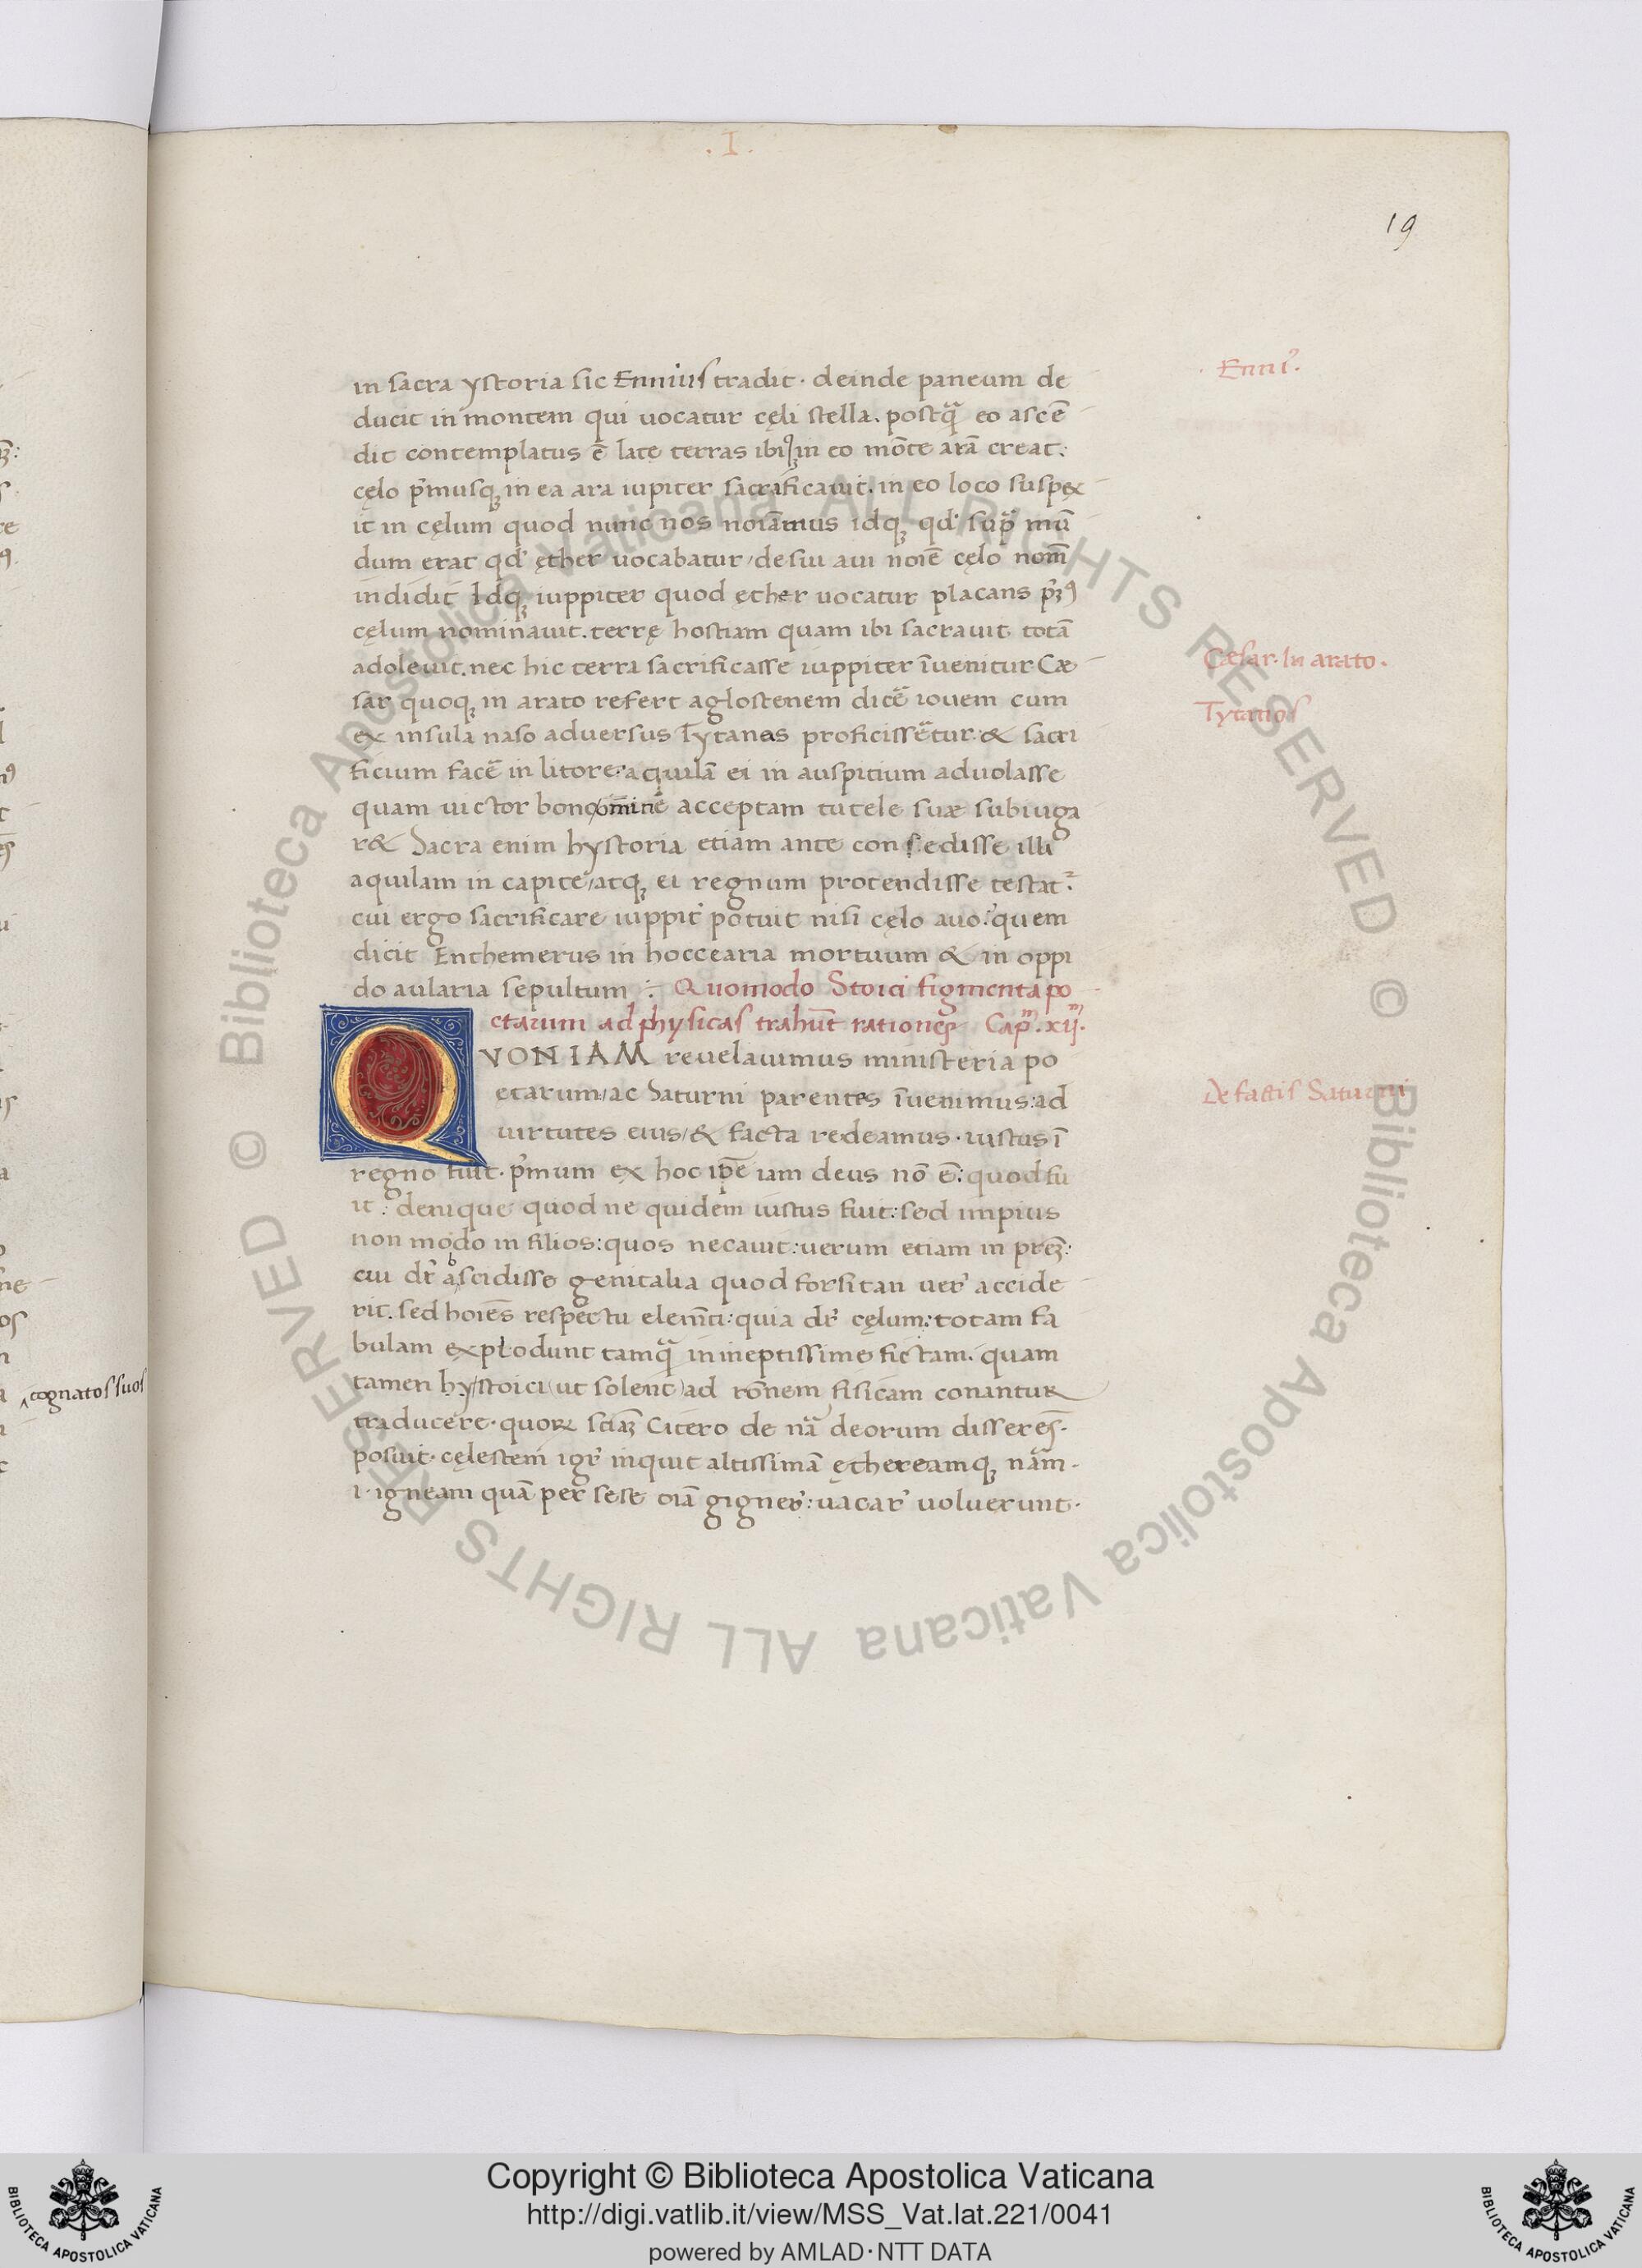 .I.
19
in sacra ystoria sic Ennius tradit. deinde paneum de
ducit in montem qui uocatur cęli stella. postq̃ eo ascē
dit contemplatus ē late terras ibiqꝫ in eo mōte arā creat:
cęlo p̓musqꝫ in ea ara iupiter sacrificauit. in eo loco suspex
it in cęlum quod nunc nos noiāmus idqꝫ qd̓ sup̃ mū
dum erat qd̓ ęther uocabatur/de sui aui noiē cęlo nom̄
indidit Idqꝫ iuppiter quod ęther uocatur placans p̓mꝰ
cęlum nominauit. terrę hostiam quam ibi sacrauit totā
adoleuit. nec hic terra sacrificasse iuppiter īuenitur Cæ
sar quoqꝫ in arato refert aglostenem dicē iouem cum
ex insula naso aduersus Tytanas proficissētur & sacri
ficium facē in litore: aquilā ei in auspitium aduolasse
quam uictor bono/omine acceptam tutele suæ subiuga
r& Sacra enim hystoria etiam ante consedisse illiꝰ
aquilam in capite/atqꝫ ei regnum protendisse testat᷑.
cui ergo sacrificare iuppit̓ potuit nisi cęlo auo: quem
dicit Enthemerus in hoccearia mortuum & in oppi
do aularia sepultum : Quomodo Stoici figmenta po
etarum ad physicas trahūt rationes Cap̄ᵐ. xijᵐ.
QVONIAM reuelauimus ministeria po
etarum/ac Saturni parentes īuenimus: ad
uirtutes eius/& facta redeamus. iustus ī
regno fuit. p̓mum ex hoc ip̄e iam deus nō ē: quod fu
it: denique quod ne quidem iustus fuit: sed impius
non modo in filios: quos necauit: uerum etiam in pr̄eꝫ:
cui dr̄ abscidisse genitalia quod forsitan uer̓ accide
rit. sed hoiēs respectu elem̄ti: quia dr̄ cęlum: totam fa
bulam explodunt tamq̃ in ineptissime fictam. quam
tamen hy/stoici (ut solent) ad rōnem fisicam conantur
traducere. quoꝝ sn̄iaꝫ Cicero de nā deorum disserēs.
posuit. cęlestem igr̓ inquit altissimā ęthereamqꝫ nām.
.i. igneam quā per sese oīā gigner̓: uacar̓ uoluerunt.
. Enniꝰ.
Cæsar. In arato.
Tytanos
De factis Saturni
cognatos suos
© Biblioteca Apostolica Vaticana ALL RIGHTS RESERVED © Biblioteca Apostolica Vaticana ALL RIGHTS RESERVED
Copyright © Biblioteca Apostolica Vaticana
http://digi.vatlib.it/view/MSS_Vat.lat.221/0041
powered by AMLAD·NTT DATA
BIBLIOTECA APOSTOLICA VATICANA
BIBLIOTECA APOSTOLICA VATICANA